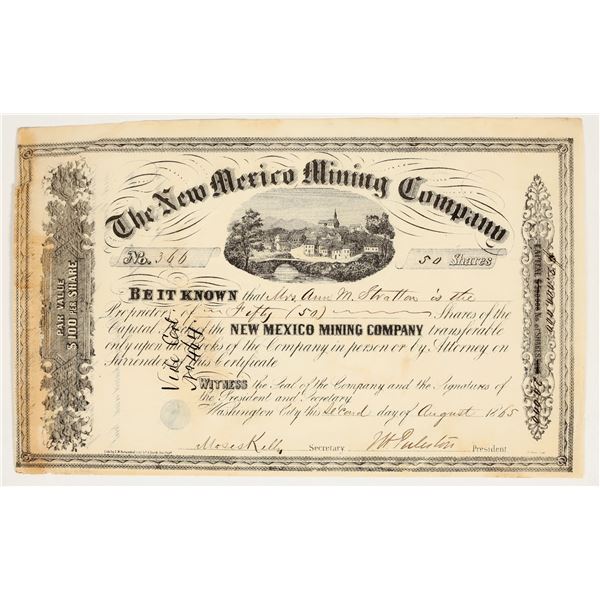 The New Mexico Mining Company
No. 366
50 Shares
BE IT KNOWN that Mrs Ann M. Stratton is the
Proprietor of Fifty (50) Shares of the
Capital of the NEW MEXICO MINING COMPANY transferable
only upon books of the Company in person or by Attorney on
Surrender this Certificate
WITNESS the Seal of the Company and the Signatures of
the President and Secretary
Washington City this second day of August 1865
Moses Kelly Secretary President
PAR VALUE
$100 PER SHARE
CAPITAL